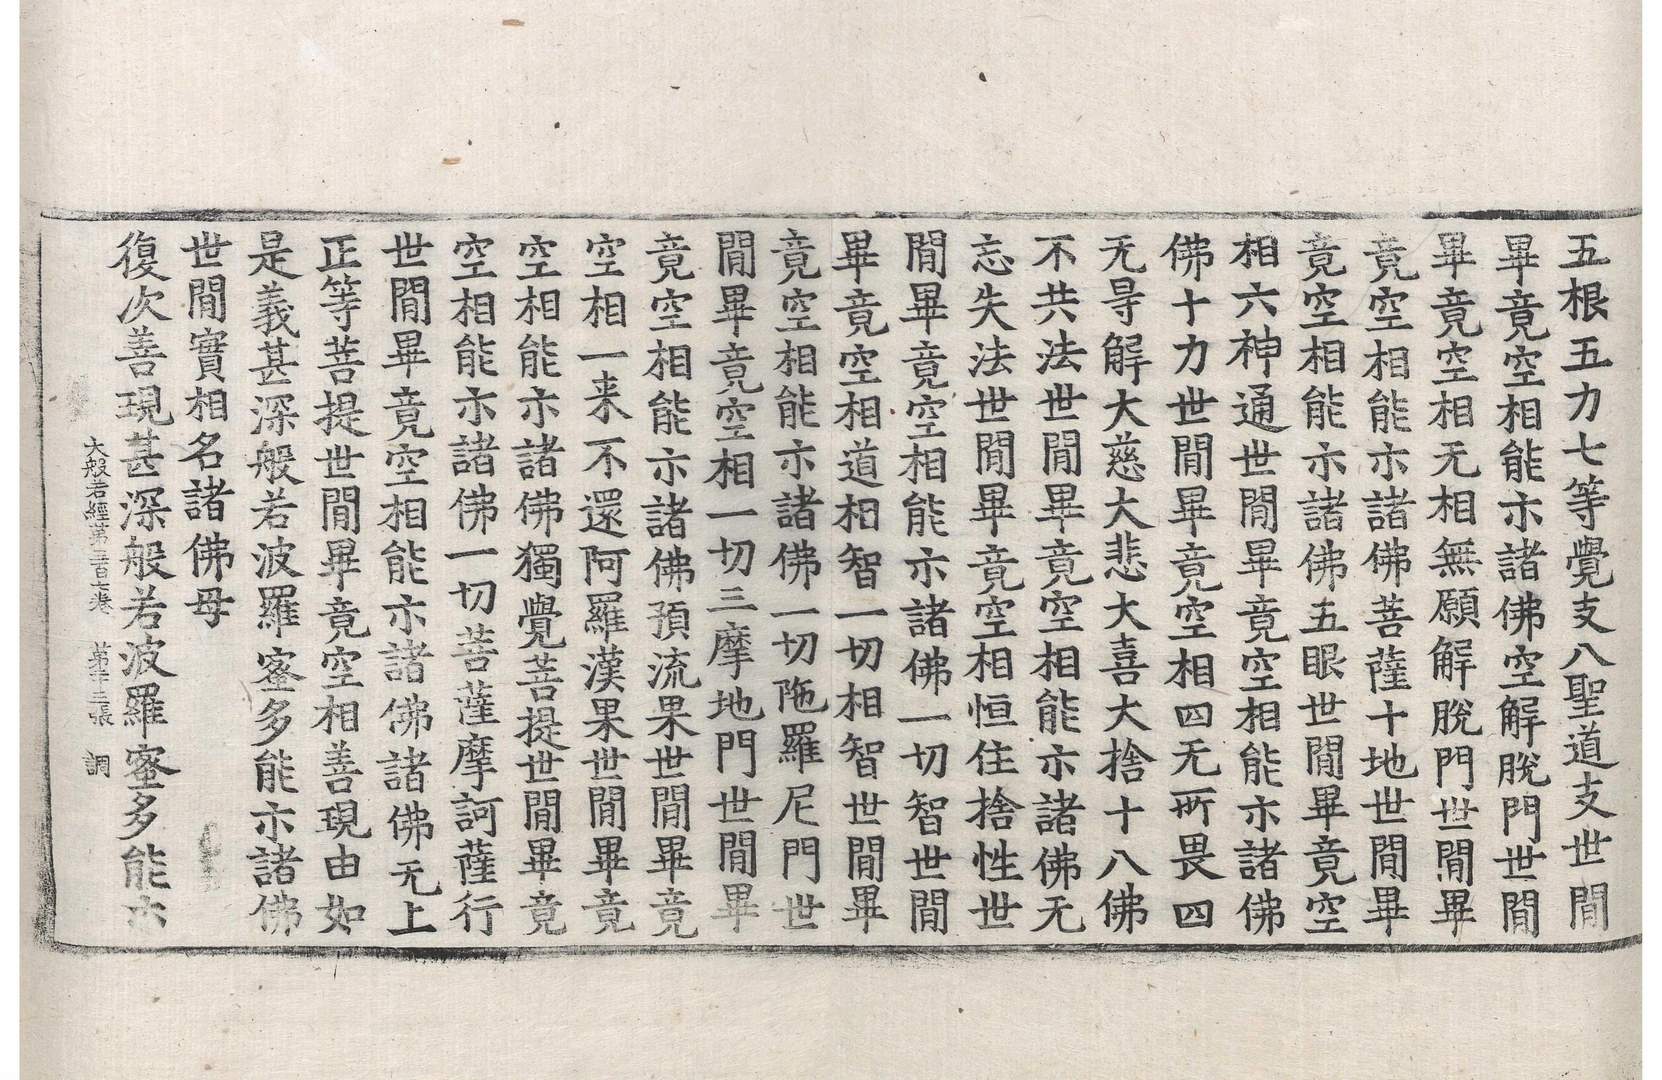 五根五力七等覺支八聖道支世閒
畢竟空相能示諸佛空解脫門世閒
畢竟空相无相無願解脫門世閒畢
竟空相能示諸佛菩薩十地世閒畢
竟空相能示諸佛五眼世閒畢竟空
相六神通世閒畢竟空相能示諸佛
佛十力世閒畢竟空相四无所畏四
无㝵解大慈大悲大喜大捨十八佛
不共法世閒畢竟空相能示諸佛无
忘失法世閒畢竟空相恒住捨性世
閒畢竟空相能示諸佛一切智世閒
畢竟空相道相智一切相智世閒畢
竟空相能示諸佛一切陁羅尼門世
閒畢竟空相一切三摩地門世閒畢
竟空相能示諸佛預流果世閒畢竟
空相一来不還阿羅漢果世閒畢竟
空相能示諸佛獨覺菩提世閒畢竟
空相能示諸佛一切菩薩摩訶薩行
世閒畢竟空相能示諸佛諸佛无上
正等菩提世閒畢竟空相善現由如
是義甚深般若波羅蜜多能示諸佛
世閒實相名諸佛母
復次善現甚深般若波羅蜜多能示
大般若經第三百七卷 第十三張 調